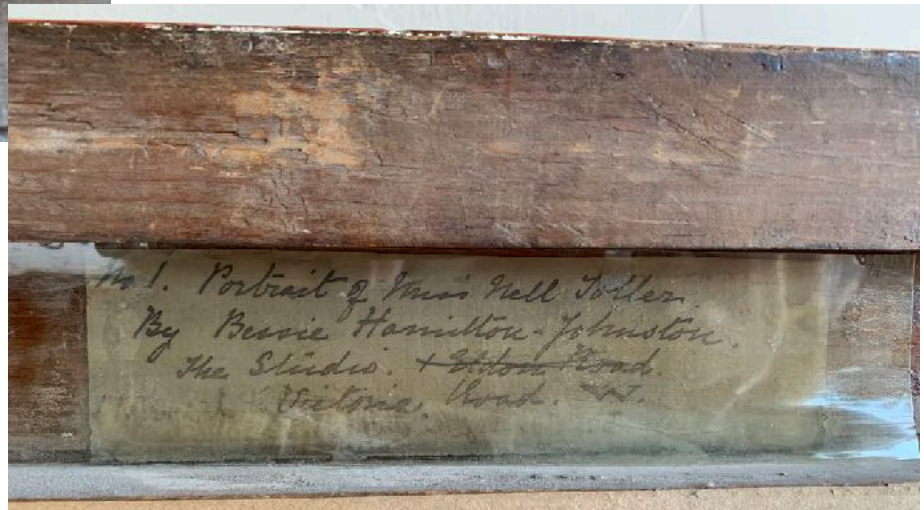 No 1. Portrait of Miss Nell Toller.
By Bessie Hamilton-Johnston.
The Studio. Eldon Road.
Victoria. Road. W.